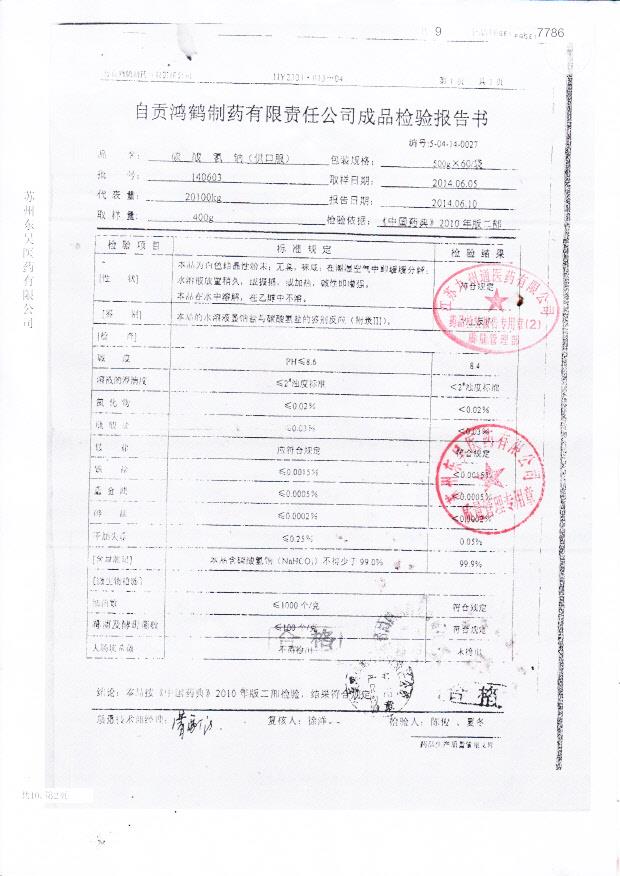 9
7786
第1页 共1页
自贡鸿鹤制药有限责任公司成品检验报告书
编号:5-04-14-0027
品 名: 碳 酸 氢 钠（供口服） 包装规格: 500g×60/袋
批 号: 140603 取样日期: 2014.06.05
代 表 量: 20100kg 报告日期: 2014.06.10
取 样 量: 400g 检验依据: 《中国药典》2010年版二部
检 验 项 目 标 准 规 定 检 验 结 果
本品为白色结晶性粉末；无臭，味咸；在潮湿空气中即缓缓分解；
[性 状] 水溶液放置稍久，或振摇，或加热，碱性即增强。 符合规定
本品在水中溶解，在乙醇中不溶。
[鉴 别] 本品的水溶液显钠盐与碳酸氢盐的鉴别反应（附录Ⅲ）。
[检 查]
碱 度 PH≤8.6 8.4
溶液的澄清度 ≤2#浊度标准 <2#浊度标准
氯 化 物 ≤0.02% <0.02%
硫 酸 盐 ≤0.03% <0.03%
铵 盐 应符合规定 符合规定
铁 盐 ≤0.0015% ≤0.0015%
重 金 属 ≤0.0005% ≤0.0005%
砷 盐 ≤0.0002% <0.0002%
干燥失重 ≤0.25% 0.05%
[含量测定] 本品含碳酸氢钠（NaHCO₃）不得少于99.0% 99.9%
[微生物检测]
细菌数 ≤1000个/克 符合规定
霉菌及酵母菌数 ≤100个/克 符合规定
大肠埃希菌 不得检出 未检出
合格
结论：本品按《中国药典》2010年版二部检验，结果符合规定。
合格
质量技术部经理: 复核人：徐洋 检验人：陈俊、夏冬
苏州东吴医药有限公司
江苏九州通医药有限公司
质量管理部
苏州东吴医药有限公司
质量管理专用章